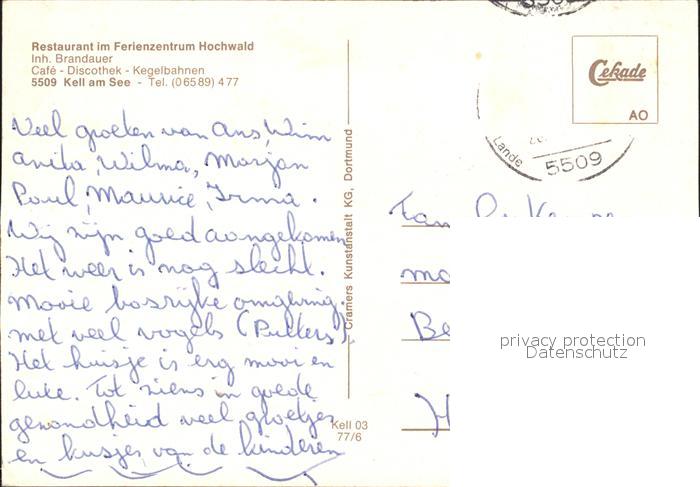 Restaurant im Ferienzentrum Hochwald
Inh. Brandauer
Café - Discothek - Kegelbahnen
5509 Kell am See - Tel. (06589) 477
Veel groeten van Ans, Wim
Anita, Wilma, Marjan
Poul, Maurice, Irma.
Wij zijn goed aangekomen
Het weer is nog slecht.
Mooie bosrijke omgeving.
met veel vogels (Putters)
Het huisje is erg mooi en
luxe. Tot ziens in goede
gezondheid veel groetjes
en kusjes van de kinderen
Cramers Kunstanstalt KG, Dortmund
Kell 03
77/6
Cekade
AO
Lande
5509
Fam
Be
H
privacy protection
Datenschutz